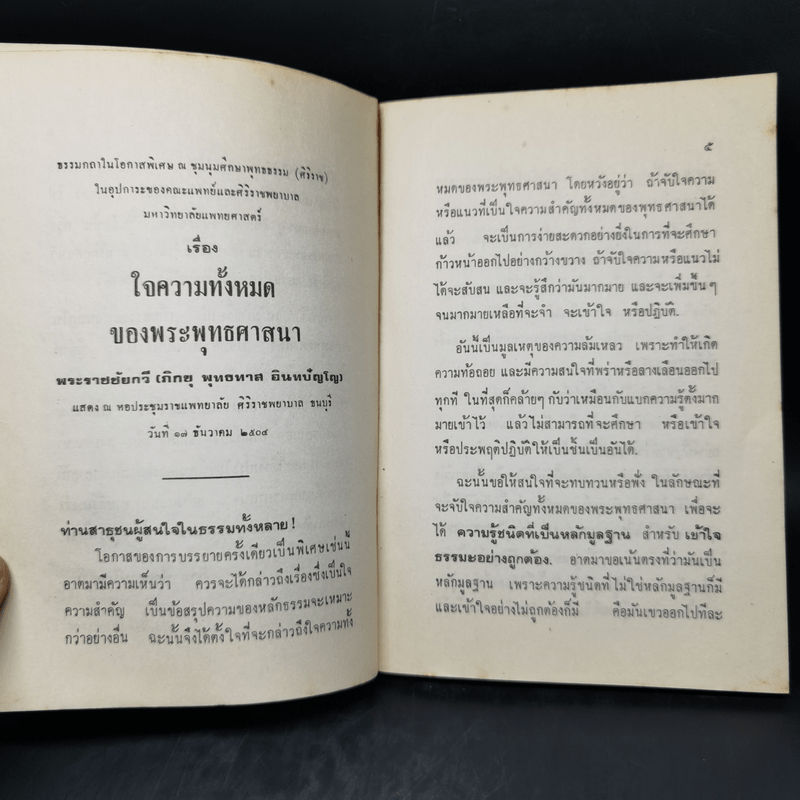 ธรรมกถาในโอกาสพิเศษ ณ ชุมนุมศึกษาพุทธธรรม (ศิริราช)
ในอุปการะของคณะแพทย์และศิริราชพยาบาล
มหาวิทยาลัยแพทยศาสตร์
เรื่อง
ใจความทั้งหมด
ของพระพุทธศาสนา
พระราชชัยกวี (ภิกขุ พุทธทาส อินทปัญโญ)
แสดง ณ หอประชุมราชแพทยาลัย ศิริราชพยาบาล ธนบุรี
วันที่ ๑๗ ธันวาคม ๒๕๐๔
ท่านสาธุชนผู้สนใจในธรรมทั้งหลาย !
โอกาสของการบรรยายครั้งเดียวเป็นพิเศษเช่นนี้
อาตมามีความเห็นว่า ควรจะได้กล่าวถึงเรื่องซึ่งเป็นใจ
ความสำคัญ เป็นข้อสรุปความของหลักธรรมจะเหมาะ
กว่าอย่างอื่น ฉะนั้นจึงได้ตั้งใจที่จะกล่าวถึงใจความทั้ง
๕
หมดของพระพุทธศาสนา โดยหวังอยู่ว่า ถ้าจับใจความ
หรือแนวที่เป็นใจความสำคัญทั้งหมดของพุทธศาสนาได้
แล้ว จะเป็นการง่ายสะดวกอย่างยิ่งในการที่จะศึกษา
ก้าวหน้าออกไปอย่างกว้างขวาง ถ้าจับใจความหรือแนวไม่
ได้จะสับสน และจะรู้สึกว่ามันมากมาย และจะเพิ่มขึ้น ๆ
จนมากมายเหลือที่จะจำ จะเข้าใจ หรือปฏิบัติ.
อันนี้เป็นมูลเหตุของความล้มเหลว เพราะทำให้เกิด
ความท้อถอย และมีความสนใจที่พร่าหรือลางเลือนออกไป
ทุกที ในที่สุดก็คล้ายๆ กับว่าเหมือนกับแบกความรู้ตั้งมาก
มายเข้าไว้ แล้วไม่สามารถที่จะศึกษา หรือเข้าใจ
หรือประพฤติปฏิบัติให้เป็นชิ้นเป็นอันได้.
ฉะนั้นขอให้สนใจที่จะทบทวนหรือฟัง ในลักษณะที่
จะจับใจความสำคัญทั้งหมดของพระพุทธศาสนา เพื่อจะ
ได้ ความรู้ชนิดที่เป็นหลักมูลฐาน สำหรับ เข้าใจ
ธรรมะอย่างถูกต้อง. อาตมาขอเน้นตรงที่ว่ามันเป็น
หลักมูลฐาน เพราะความรู้ชนิดที่ ไม่ใช่หลักมูลฐานก็มี
และเข้าใจอย่างไม่ถูกต้องก็มี คือมันเขวออกไปทีละ